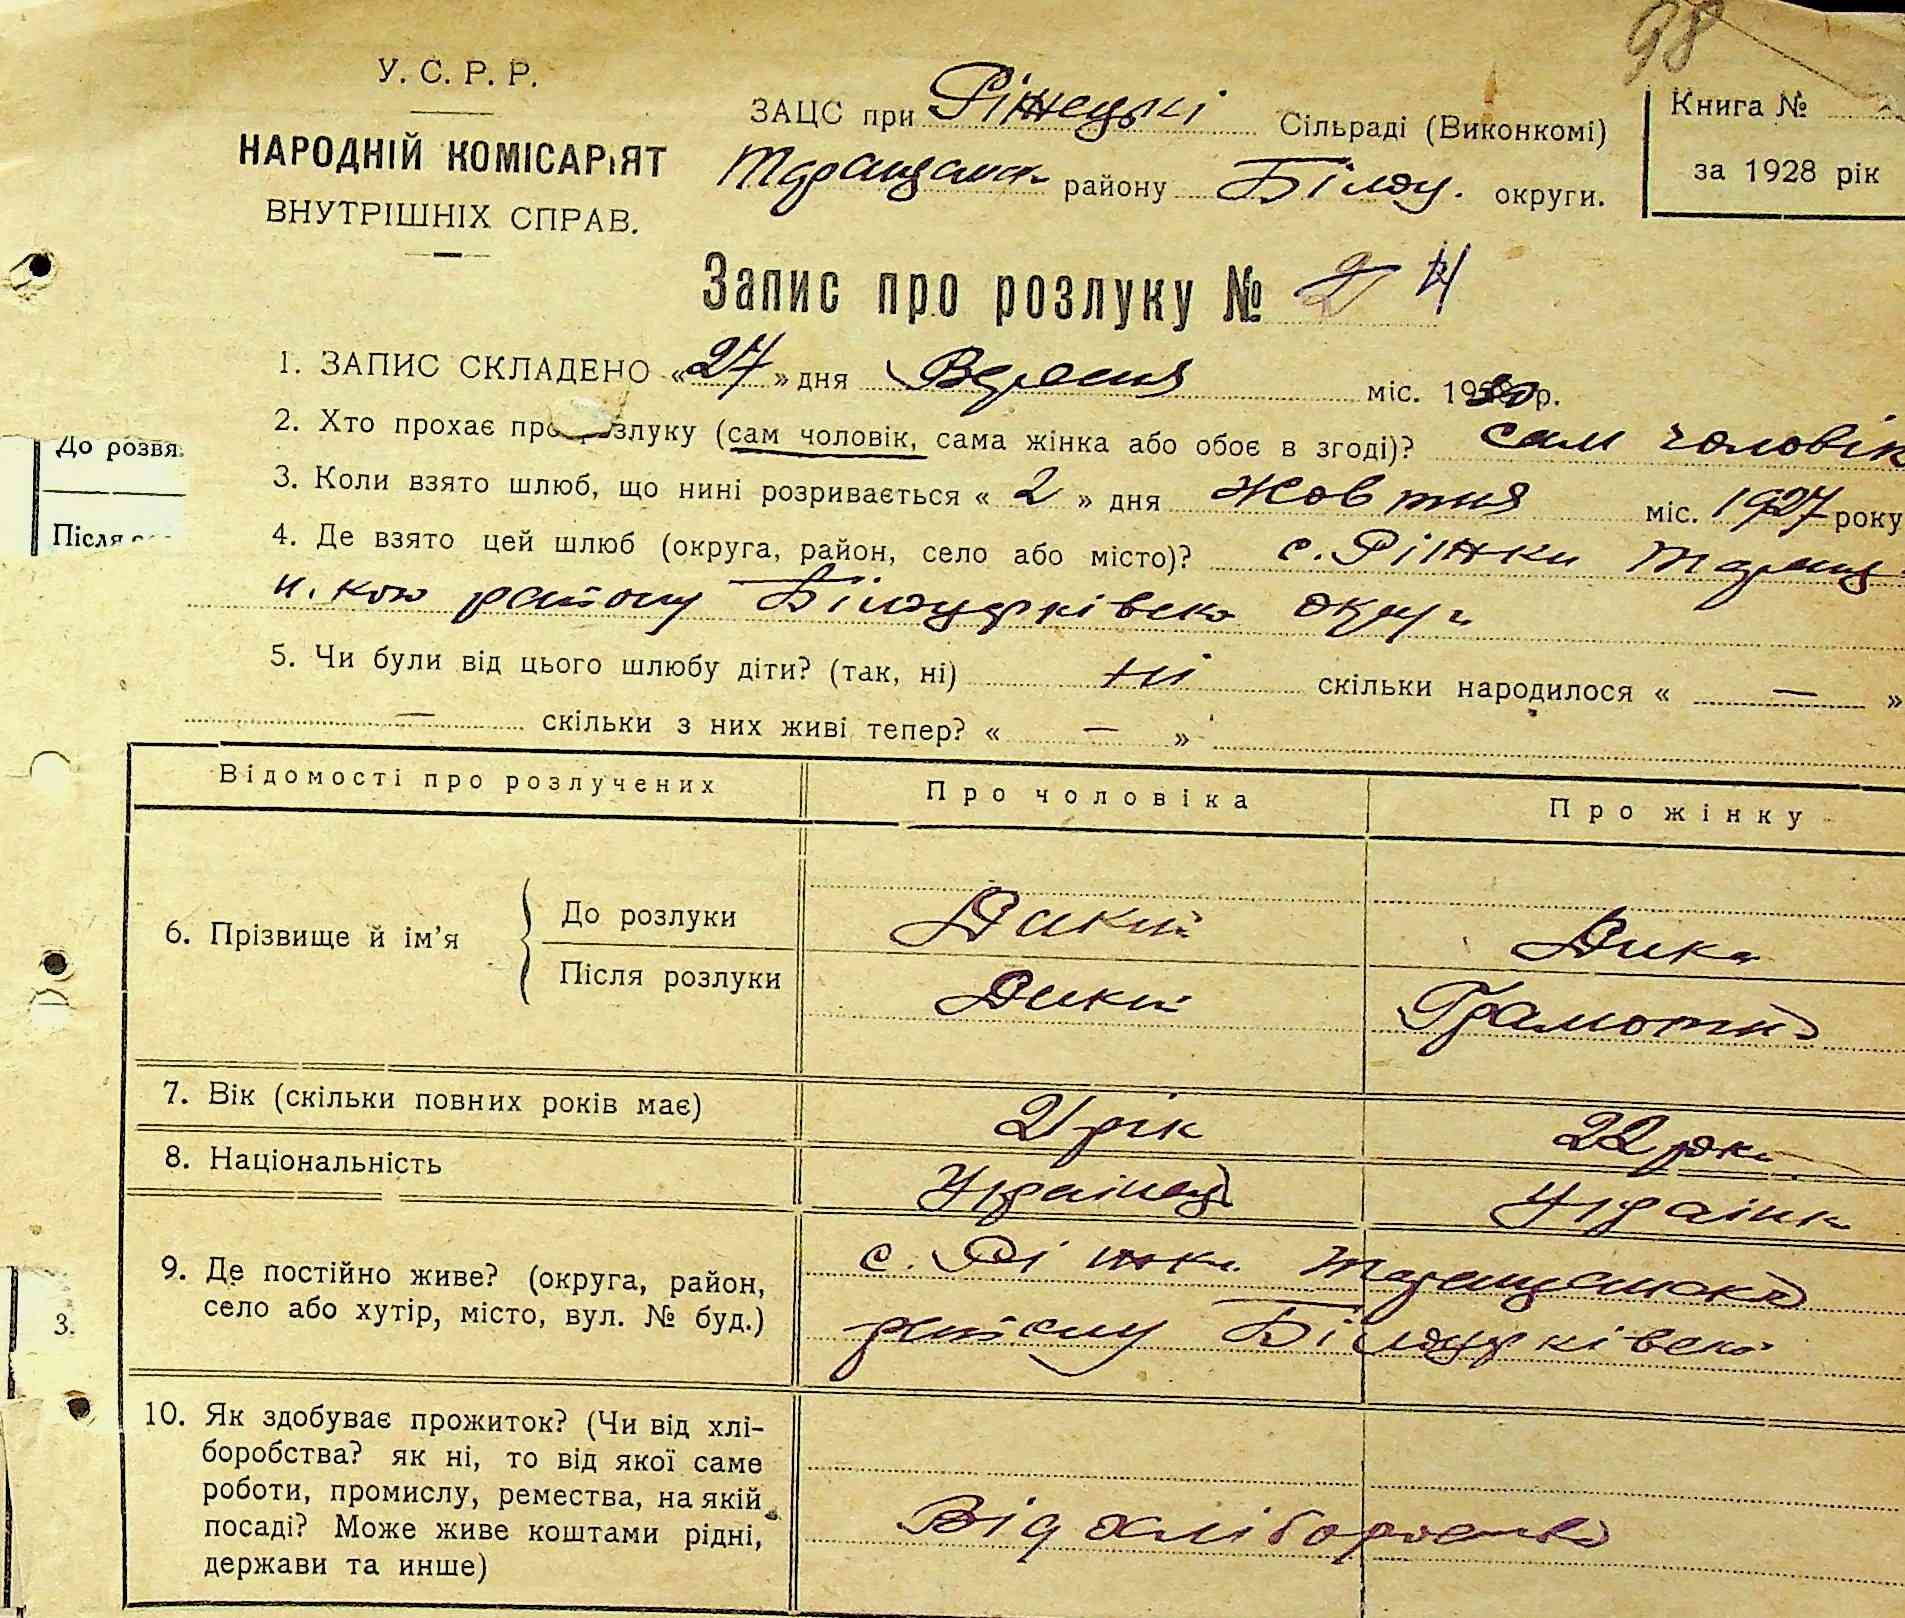 98
У. С. Р. Р.
НАРОДНІЙ КОМІСАРІЯТ
ВНУТРІШНІХ СПРАВ.
ЗАЦС при Ріжецькі Сільраді (Виконкомі)
району Білоц. округи.
Книга №
за 1928 рік
Запис про розлуку № 24
1. ЗАПИС СКЛАДЕНО «27» дня Вересня міс. 1930 р.
2. Хто прохає про розлуку (сам чоловік, сама жінка або обоє в згоді)? сам чоловік
3. Коли взято шлюб, що нині розривається « 2 » дня Жовтня міс. 1927 року
4. Де взято цей шлюб (округа, район, село або місто)? с. Ріжки Таращ
району Білоцерківсько округи
5. Чи були від цього шлюбу діти? (так, ні) ні скільки народилося « — »
— скільки з них живі тепер? « — »
До розвя
Після
Відомості про розлучених
Про чоловіка
Про жінку
6. Прізвище й ім'я
До розлуки
Дикий
Дика
Після розлуки
Дикий
Грамотна
7. Вік (скільки повних років має)
21 рік
22 роки
8. Національність
Українець
Українк
9. Де постійно живе? (округа, район,
село або хутір, місто, вул. № буд.)
с. Ріжки Таращанська
району Білоцерківсько
3.
10. Як здобуває прожиток? (Чи від хлі-
боробства? як ні, то від якої саме
роботи, промислу, ремества, на якій
посаді? Може живе коштами рідні,
держави та инше)
Від хліборобства